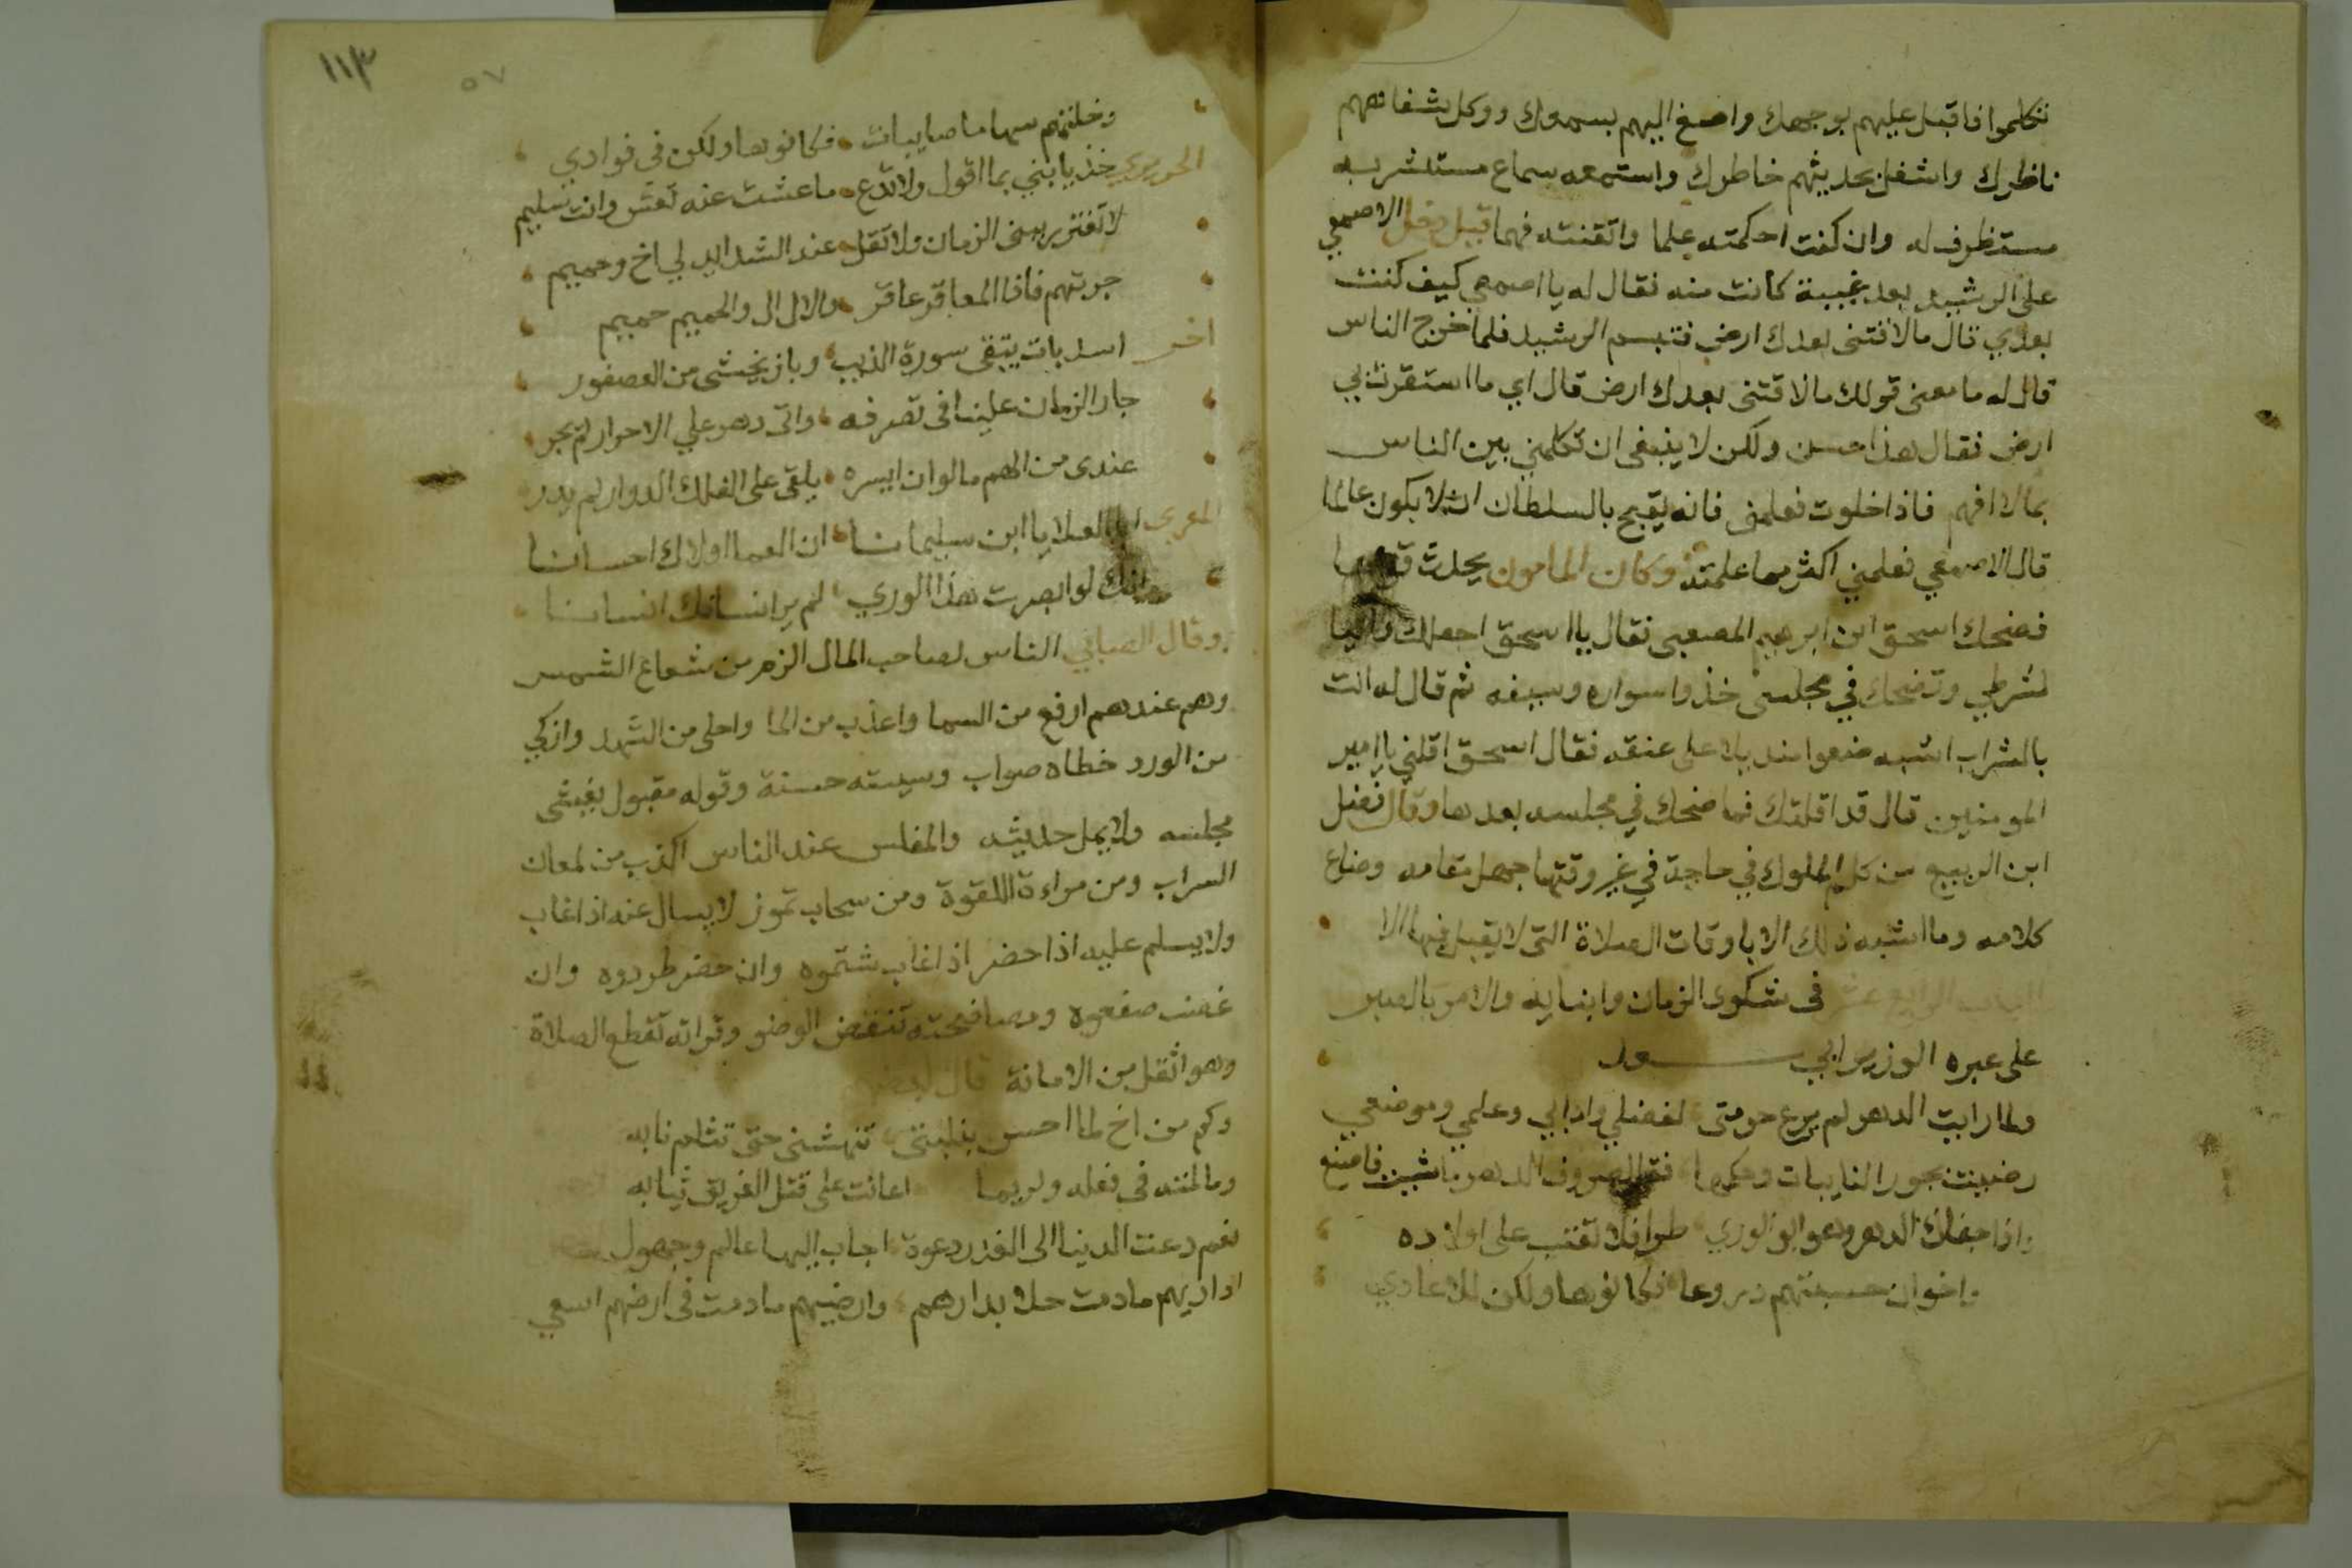 تتكلموا فاقبل عليهم بوجهك واصغ اليهم بسمعك ووكل بشفاههم
ناظرك واشغل بحديثهم خاطرك واستمعه سماع مستبشر به
مستظرف له وان كنت احكمته علما واتقنته فهما قيل دخل الاصمعي
على الرشيد بعد غيبة كانت منه فقال له يا اصمعي كيف كنت
بعدي قال ما لاقتنى بعدك ارض فتبسم الرشيد فلما خرج الناس
قال له ما معنى قولك ما لاقتنى بعدك ارض قال اي ما استقرت بي
ارض فقال هذا حسن ولكن لا ينبغى ان تكلمني بين الناس
بما لا افهم فاذا خلوت فعلمنى فانه يقبح بالسلطان ان لا يكون عالما
قال الاصمعي فعلمني اكثر مما علمته وكان المامون يحدث
فضحك اسحق ابن ابرهيم المصعبى فقال يا اسحق اجعلك
لشرطي وتضحك في مجلسى خذوا سواره وسيفه ثم قال له انت
بالشراب اشبه ضعوا منديلا على عنقه فقال اسحق اقلني يا امير
المومنين قال قد اقلتك فما ضحك في مجلسه بعدها وقال فضل
ابن الربيع من كلم الملوك في حاجة في غير وقتها جهل مقامه وضاع
كلامه وما اشبه ذلك الا باوقات الصلاة التى لا يقبل فيها الا
الباب الرابع عشر فى شكوى الزمان وابنايه والامر بالصبر
على عبره الوزير ابي سعد
ولما رايت الدهر لم يرع حرمتى لفضلي وادابي وعلمي وموضعي
رضيت بجور النايبات وحكمها فقل لصروف الدهر ما شيت فاصنع
واذا جفاك الدهر وهو ابو الورى طرا فلا تعتب على اولاده
واخوان حسبتهم دروعا فكانوها ولكن للاعادي
١١٣
٥٧
وخلتهم سهاما صايبات فكانوها ولكن فى فوادي
الحريري خذ يا بني بما اقول ولا تدع ما عشت عنه تعش وانت سليم
لا تغتر ببنى الزمان ولا تقل عند الشدايد لي اخ وحميم
جربتهم فاذا المعاقر عاقر والال ال والحميم حميم
اخر اسد بات يتقى سورة الذيب وباز يخشى من العصفور
جار الزمان علينا فى تصرفه واى دهر على الاحرار لم يجر
عندى من الهم ما لو ان ايسره يلقى على الفلك الدوار لم يدر
المعري ابا العلا يا ابن سليمانا ان العما اولاك احسانا
وانك لو ابصرت هذا الوري لم ير انسانك انسانا
وقال الصابي الناس لصاحب المال الزم من شعاع الشمس
وهم عندهم ارفع من السما واعذب من الما واحلى من الشهد وازكي
من الورد خطاه صواب وسيته حسنة وقوله مقبول يغشى
مجلسه ولا يمل حديثه والمفلس عند الناس اكذب من لمعان
السراب ومن مراءة اللقوة ومن سحاب تموز لا يسال عنه اذا غاب
ولا يسلم عليه اذا حضر اذا غاب شتموه وان حضر طردوه وان
غضب صفعوه ومصافحته تنقض الوضو وقراته تقطع الصلاة
وهو اثقل من الامانة قال بعضهم
وكم من اخ لما احس بنكبتى تنهشنى حتى تثلم نابه
وما لمته فى فعله ولربما اعانت على قتل الغريق ثيابه
نعم دعت الدنيا الى الغدر دعوة اجاب اليها عالم وجهول
اداريهم ما دمت حلا بدارهم وارضيهم ما دمت فى ارضهم اسعي